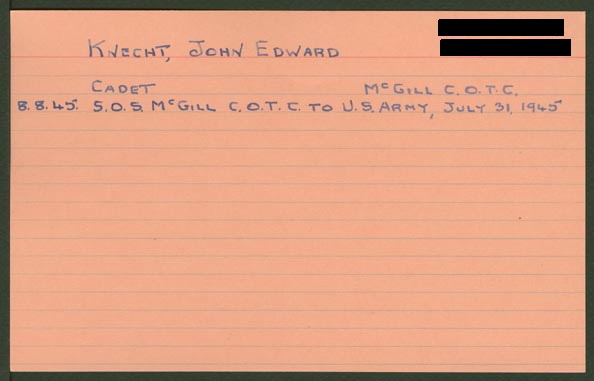 KNECHT, JOHN EDWARD
CADET McGILL C.O.T.C.
8.8.45. S.O.S. McGILL C.O.T.C. TO U.S. ARMY, JULY 31, 1945